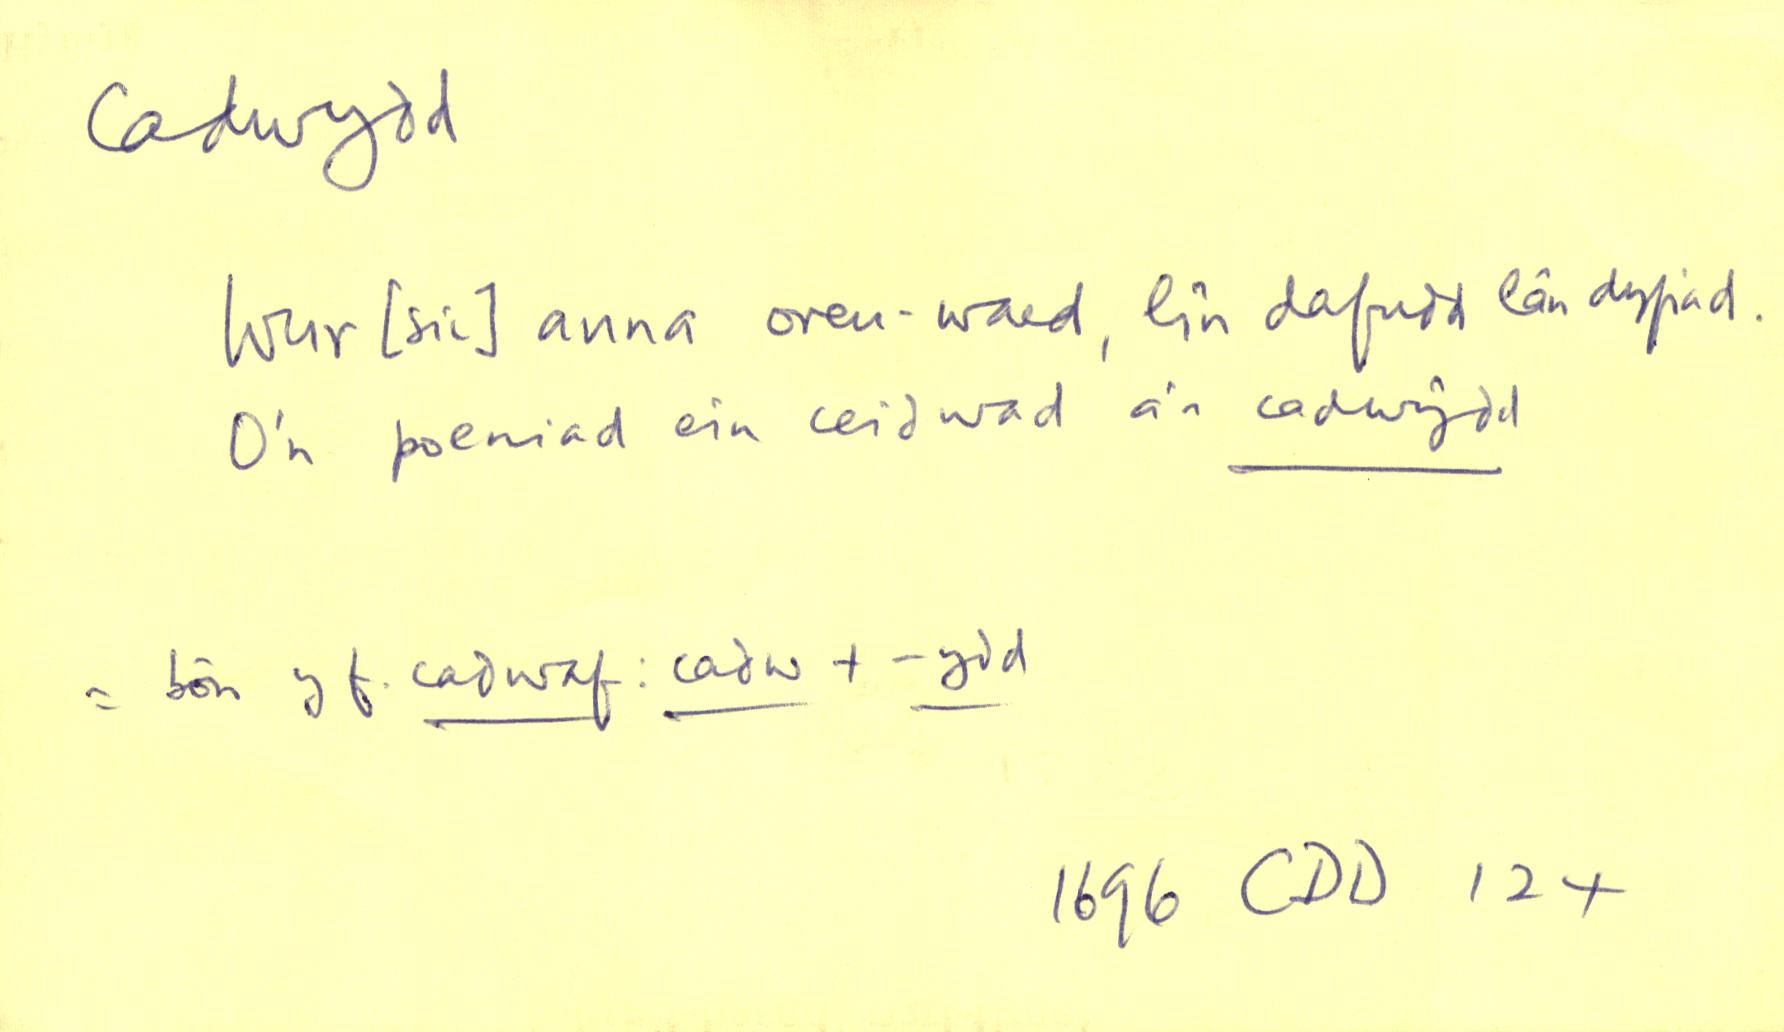 Cadwydd
Wur [sic] anna oreu-waed, lîn dafudd lân dyfiad.
O'n poeniad ein ceidwad a'n cadwŷdd
= bôn y f. cadwaf: cadw + -ydd
1696 CDD 12+